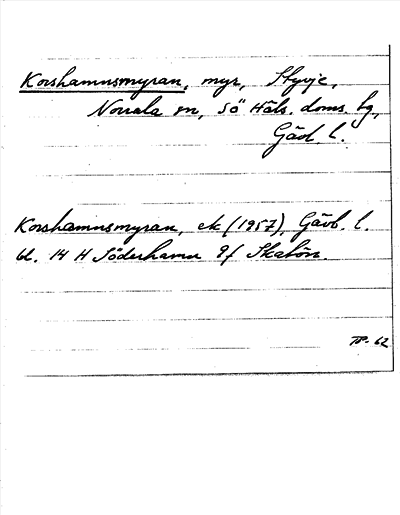 Korshamnsmyran, myr, Styvje,
Norrala sn, Sö Häls. doms. bg,
Gävl. l.
Korshamnsmyran, ek (1957), Gävb. l.
bl. 14 H Söderhamn 9f Skatön.
62